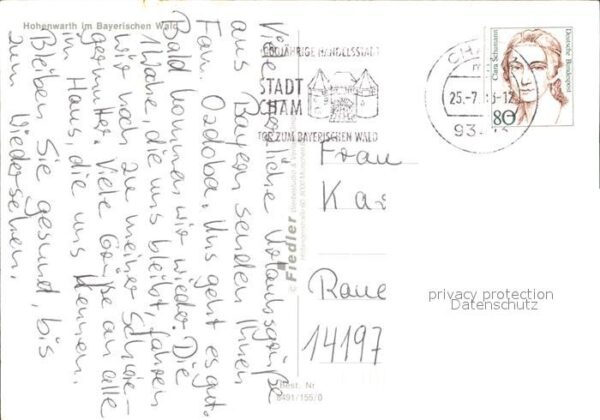 Hohenwarth im Bayerischen Wald
Viele herzliche Urlaubsgrüße
aus Bayern senden Ihnen
Fam. Ozdoba. Uns geht es gut.
Bald kommen wir wieder. Die
1 Woche, die uns bleibt, fahren
wir noch zu meiner Schwie-
germutter. Viele Grüße an alle
im Haus, die uns kennen.
Bleiben Sie gesund, bis
zum Wiedersehen.
HANDELSSTADT
STADT
CHAM
TOR ZUM BAYERISCHEN WALD
CHAM
25.-7.
93
Clara Schumann
Deutsche Bundespost
80
© Fiedler
Frau
Ka
14197
privacy protection
Datenschutz
Best. Nr
8491/155/0